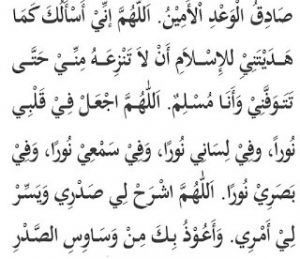 صَادِقُ الْوَعْدِ الْأَمِيْنُ. اَللّٰهُمَّ إِنِّيْ أَسْأَلُكَ كَمَا
هَـدَيْتَنِيْ لِلإِسْـلاَمِ أَنْ لاَ تَنْزِعَـهُ مِنِّـيْ حَتَّـى
تَتَوَفَّنِيْ وَأَنَا مُسْـلِمٌ. اَللّٰـهُمَّ اجْعَـلْ فِيْ قَلْبِـي
نُوراً، وفِيْ لِسَانِي نُورًا، وَفِيْ سَمْعِيْ نُورًا، وَفِيْ
بَصَرِيْ نُورًا. اَللّٰهُمَّ اشْرَحْ لِي صَدْرِي وَيَسِّرْ
لِيْ أَمْرِي. وَأَعُوْذُ بِكَ مِنْ وَسَاوِسِ الصَّدْرِ